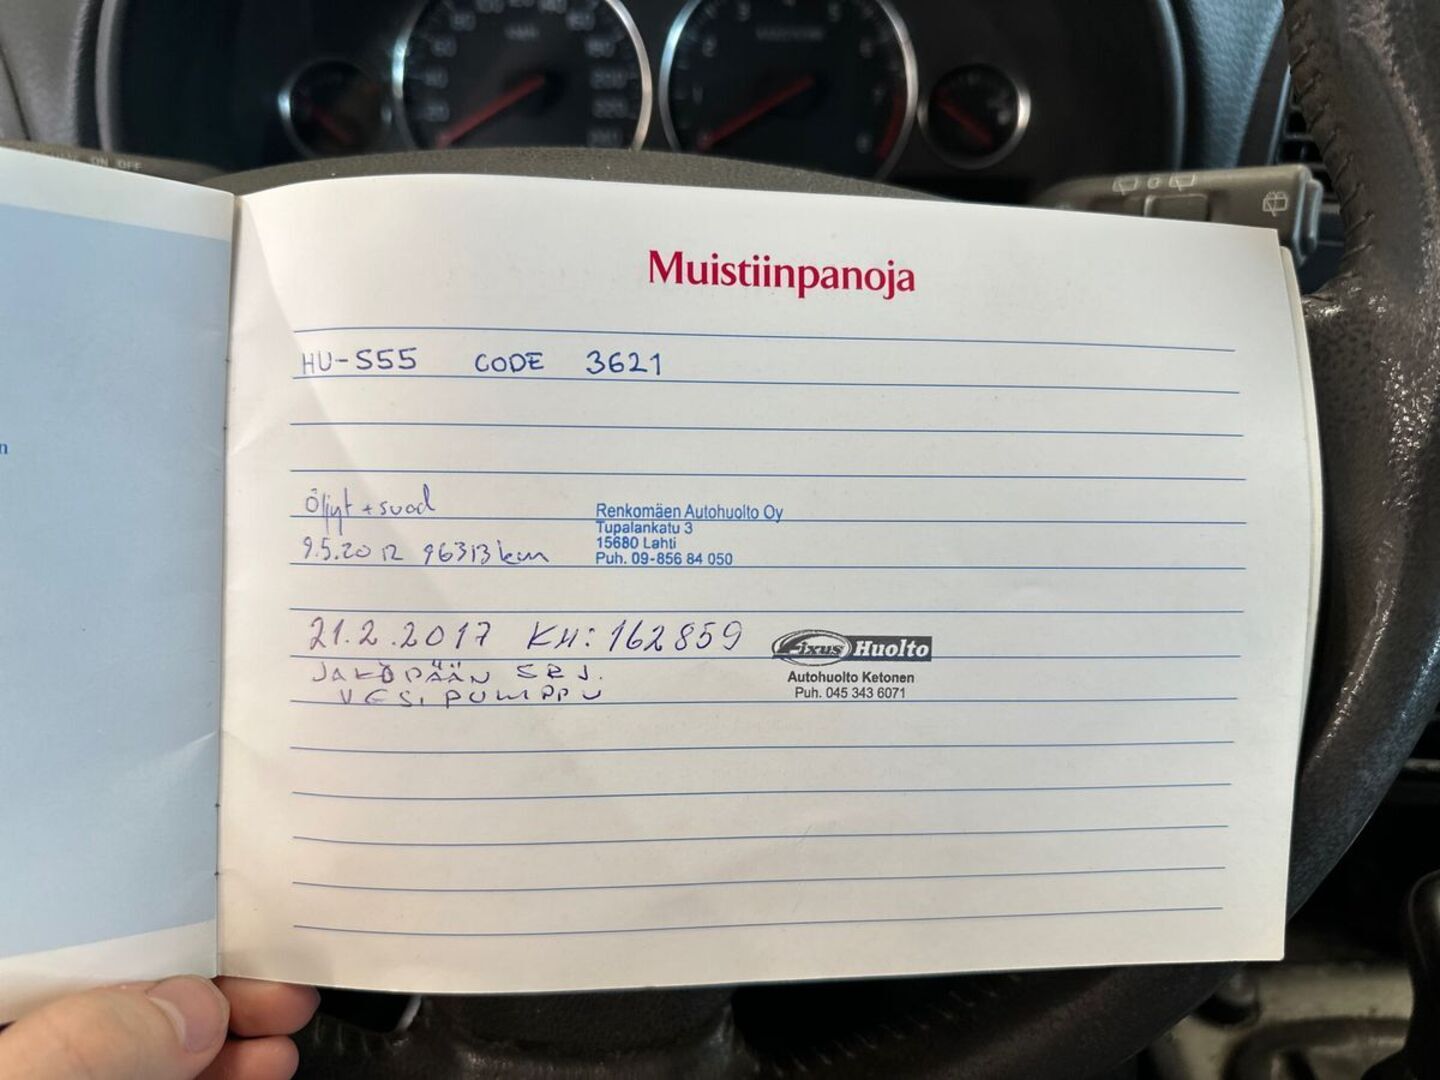 ON OFF
Muistiinpanoja
HU-S55 CODE 3621
Öljyt + suod
9.5.2012 96313 km
Renkomäen Autohuolto Oy
Tupalankatu 3
15680 Lahti
Puh. 09-856 84 050
21.2.2017 KM: 162859
JAKOPÄÄN SRJ.
VESIPUMPPU
Fixus Huolto
Autohuolto Ketonen
Puh. 045 343 6071